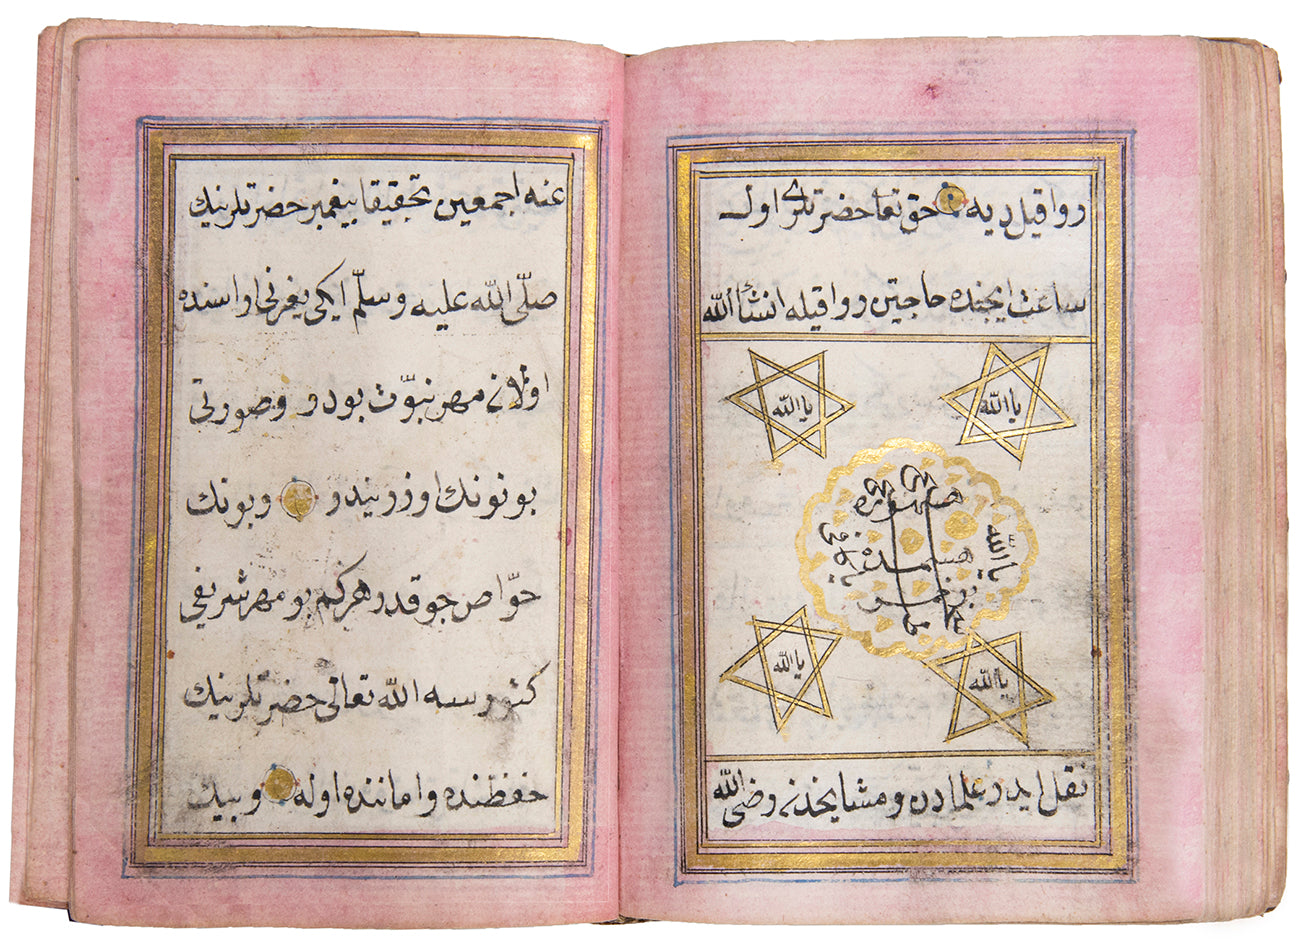 روا قيل ديه حق تعا حضرتلرى اول
ساعت ايچنده حاجتين روا قيله انشاءالله
يا الله
يا الله
يا الله
يا الله
يا الله
نقل ايدر علمادن ومشايخدن رضى الله
عنه اجمعين تحقيقا پيغمبر حضرتلرينك
صلّى الله عليه وسلّم ايكى يغرنى اراسنده
اولان مهر نبوّت بودر وصورتى
بونونك اوزريندر وبونك
خوّاص چوقدر هركم بو مهر شريفى
كتورسه الله تعالى حضرتلرينك
حفظنده واماننده اوله وبيك